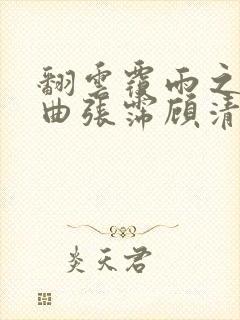 翻雲覆雨之
曲張霈顧清
炎天君